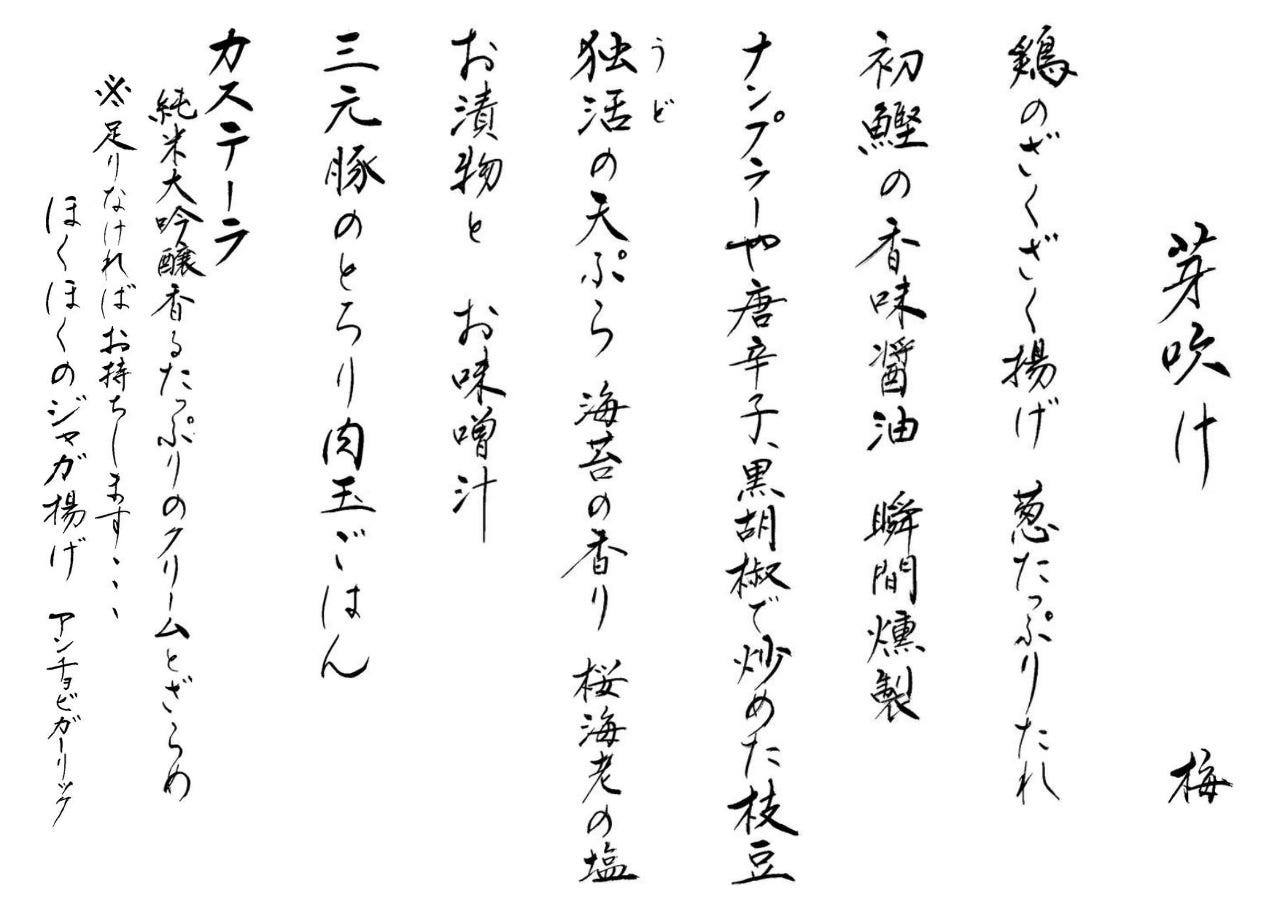 芽吹け 梅
鶏のざくざく揚げ 葱たっぷりたれ
初鰹の香味醤油 瞬間燻製
ナンプラーや唐辛子、黒胡椒で炒めた枝豆
うど
独活の天ぷら 海苔の香り 桜海老の塩
お漬物と お味噌汁
三元豚のとろり肉玉ごはん
カステーラ
純米大吟醸香るたっぷりのクリームとざらめ
※足りなければお持ちします、、、
ほくほくのジャガ揚げ アンチョビガーリック